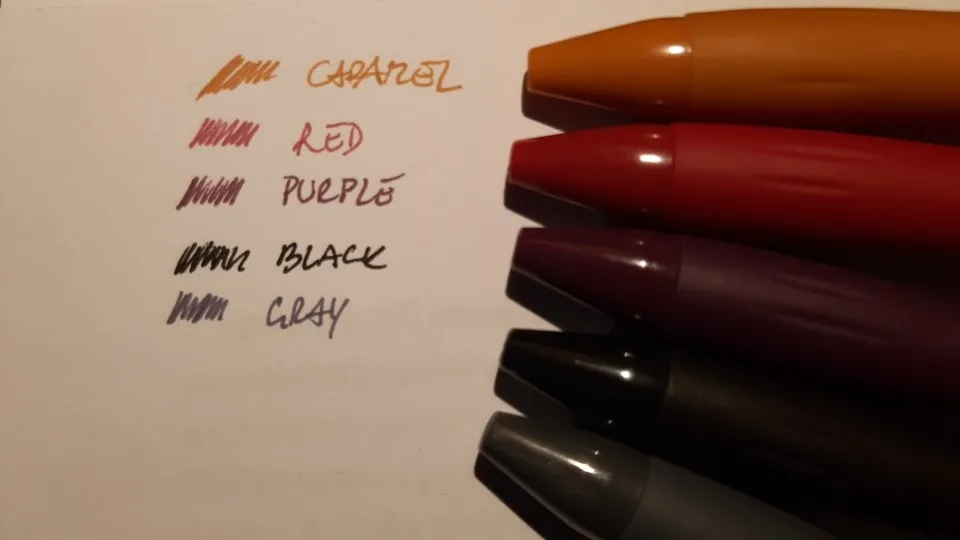 CARAMEL
RED
PURPLE
BLACK
GRAY